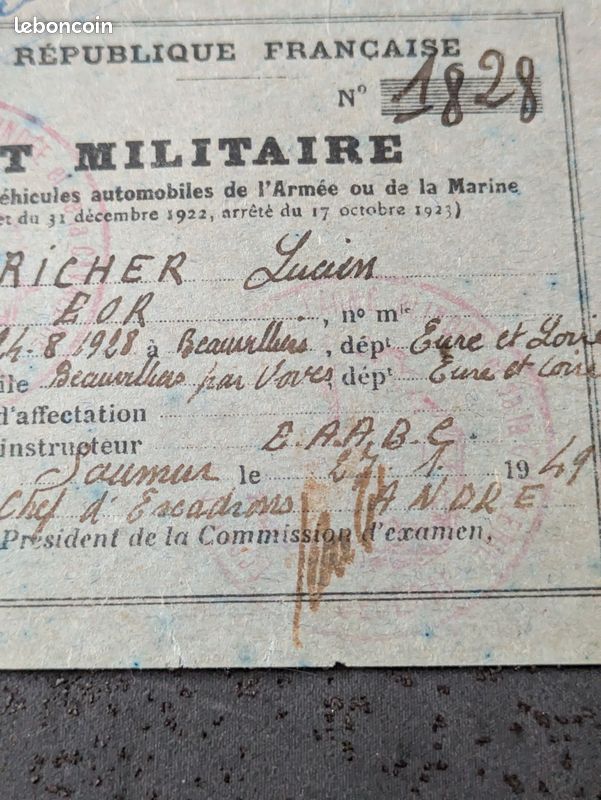 leboncoin
RÉPUBLIQUE FRANÇAISE
No 1828
T MILITAIRE
éhicules automobiles de l'Armée ou de la Marine
et du 31 décembre 1922, arrêté du 17 octobre 1923)
RICHER Lucien
EOR, no mle
24-8-1928 à Beauvilliers, dépt Eure et Loire
ile Beauvilliers par Voves, dépt Eure et Loire
d'affectation
instructeur E.A.A.B.C.
Saumur le 27. 1. 1949
Chef d'Escadrons ANDRE
Président de la Commission d'examen,